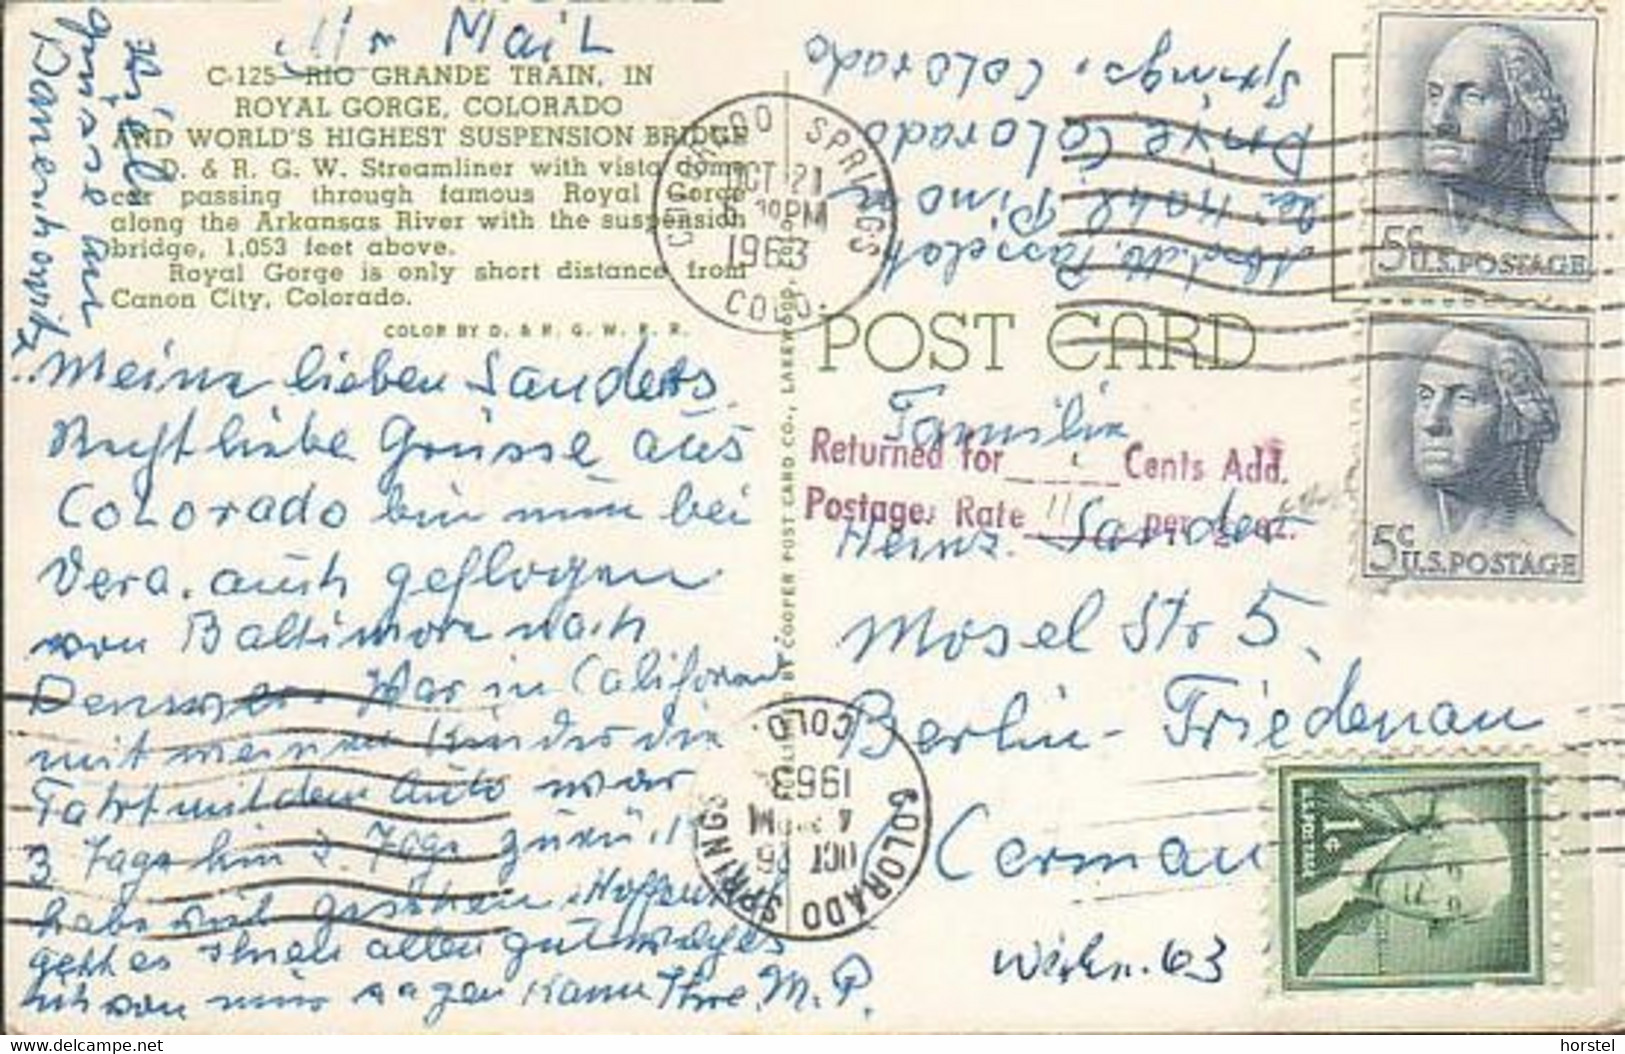 Mail
C-125—RIO GRANDE TRAIN, IN
ROYAL GORGE, COLORADO
AND WORLD'S HIGHEST SUSPENSION BRIDGE
D. & R. G. W. Streamliner with vista dome
car passing through famous Royal Gorge
along the Arkansas River with the suspension
bridge, 1,053 feet above.
Royal Gorge is only short distance from
Canon City, Colorado.
COLOR BY D. & R. G. W. R. R.
Meine lieben Sanders.
Recht liebe Grüsse aus
Colorado bin nun bei
Vera. auch geflogen
von Baltimore nach
Denver. War in California
mit meinen Kinder die
Fahrt mit dem Auto war
3 Tage hin 3 Tage zurück
habe viel gesehen. Hoffentlich
geht es Ihnen allen gut welches
ich von mir sagen kann Ihre M. P.
COLORADO SPRINGS
OCT 21
PM
1963
COLO.
COLORADO SPRINGS
COLO.
1963
OCT
Pino
Drive Colorado
Springs, Colorado
POST CARD
5c U.S.POSTAGE
5c U.S.POSTAGE
Familie
Returned for Cents Add.
Postage. Rate 11 per
Heinz Sander
Mosel Str 5,
Berlin-Friedenau
German
1c
U.S. POSTAGE
63
horstel